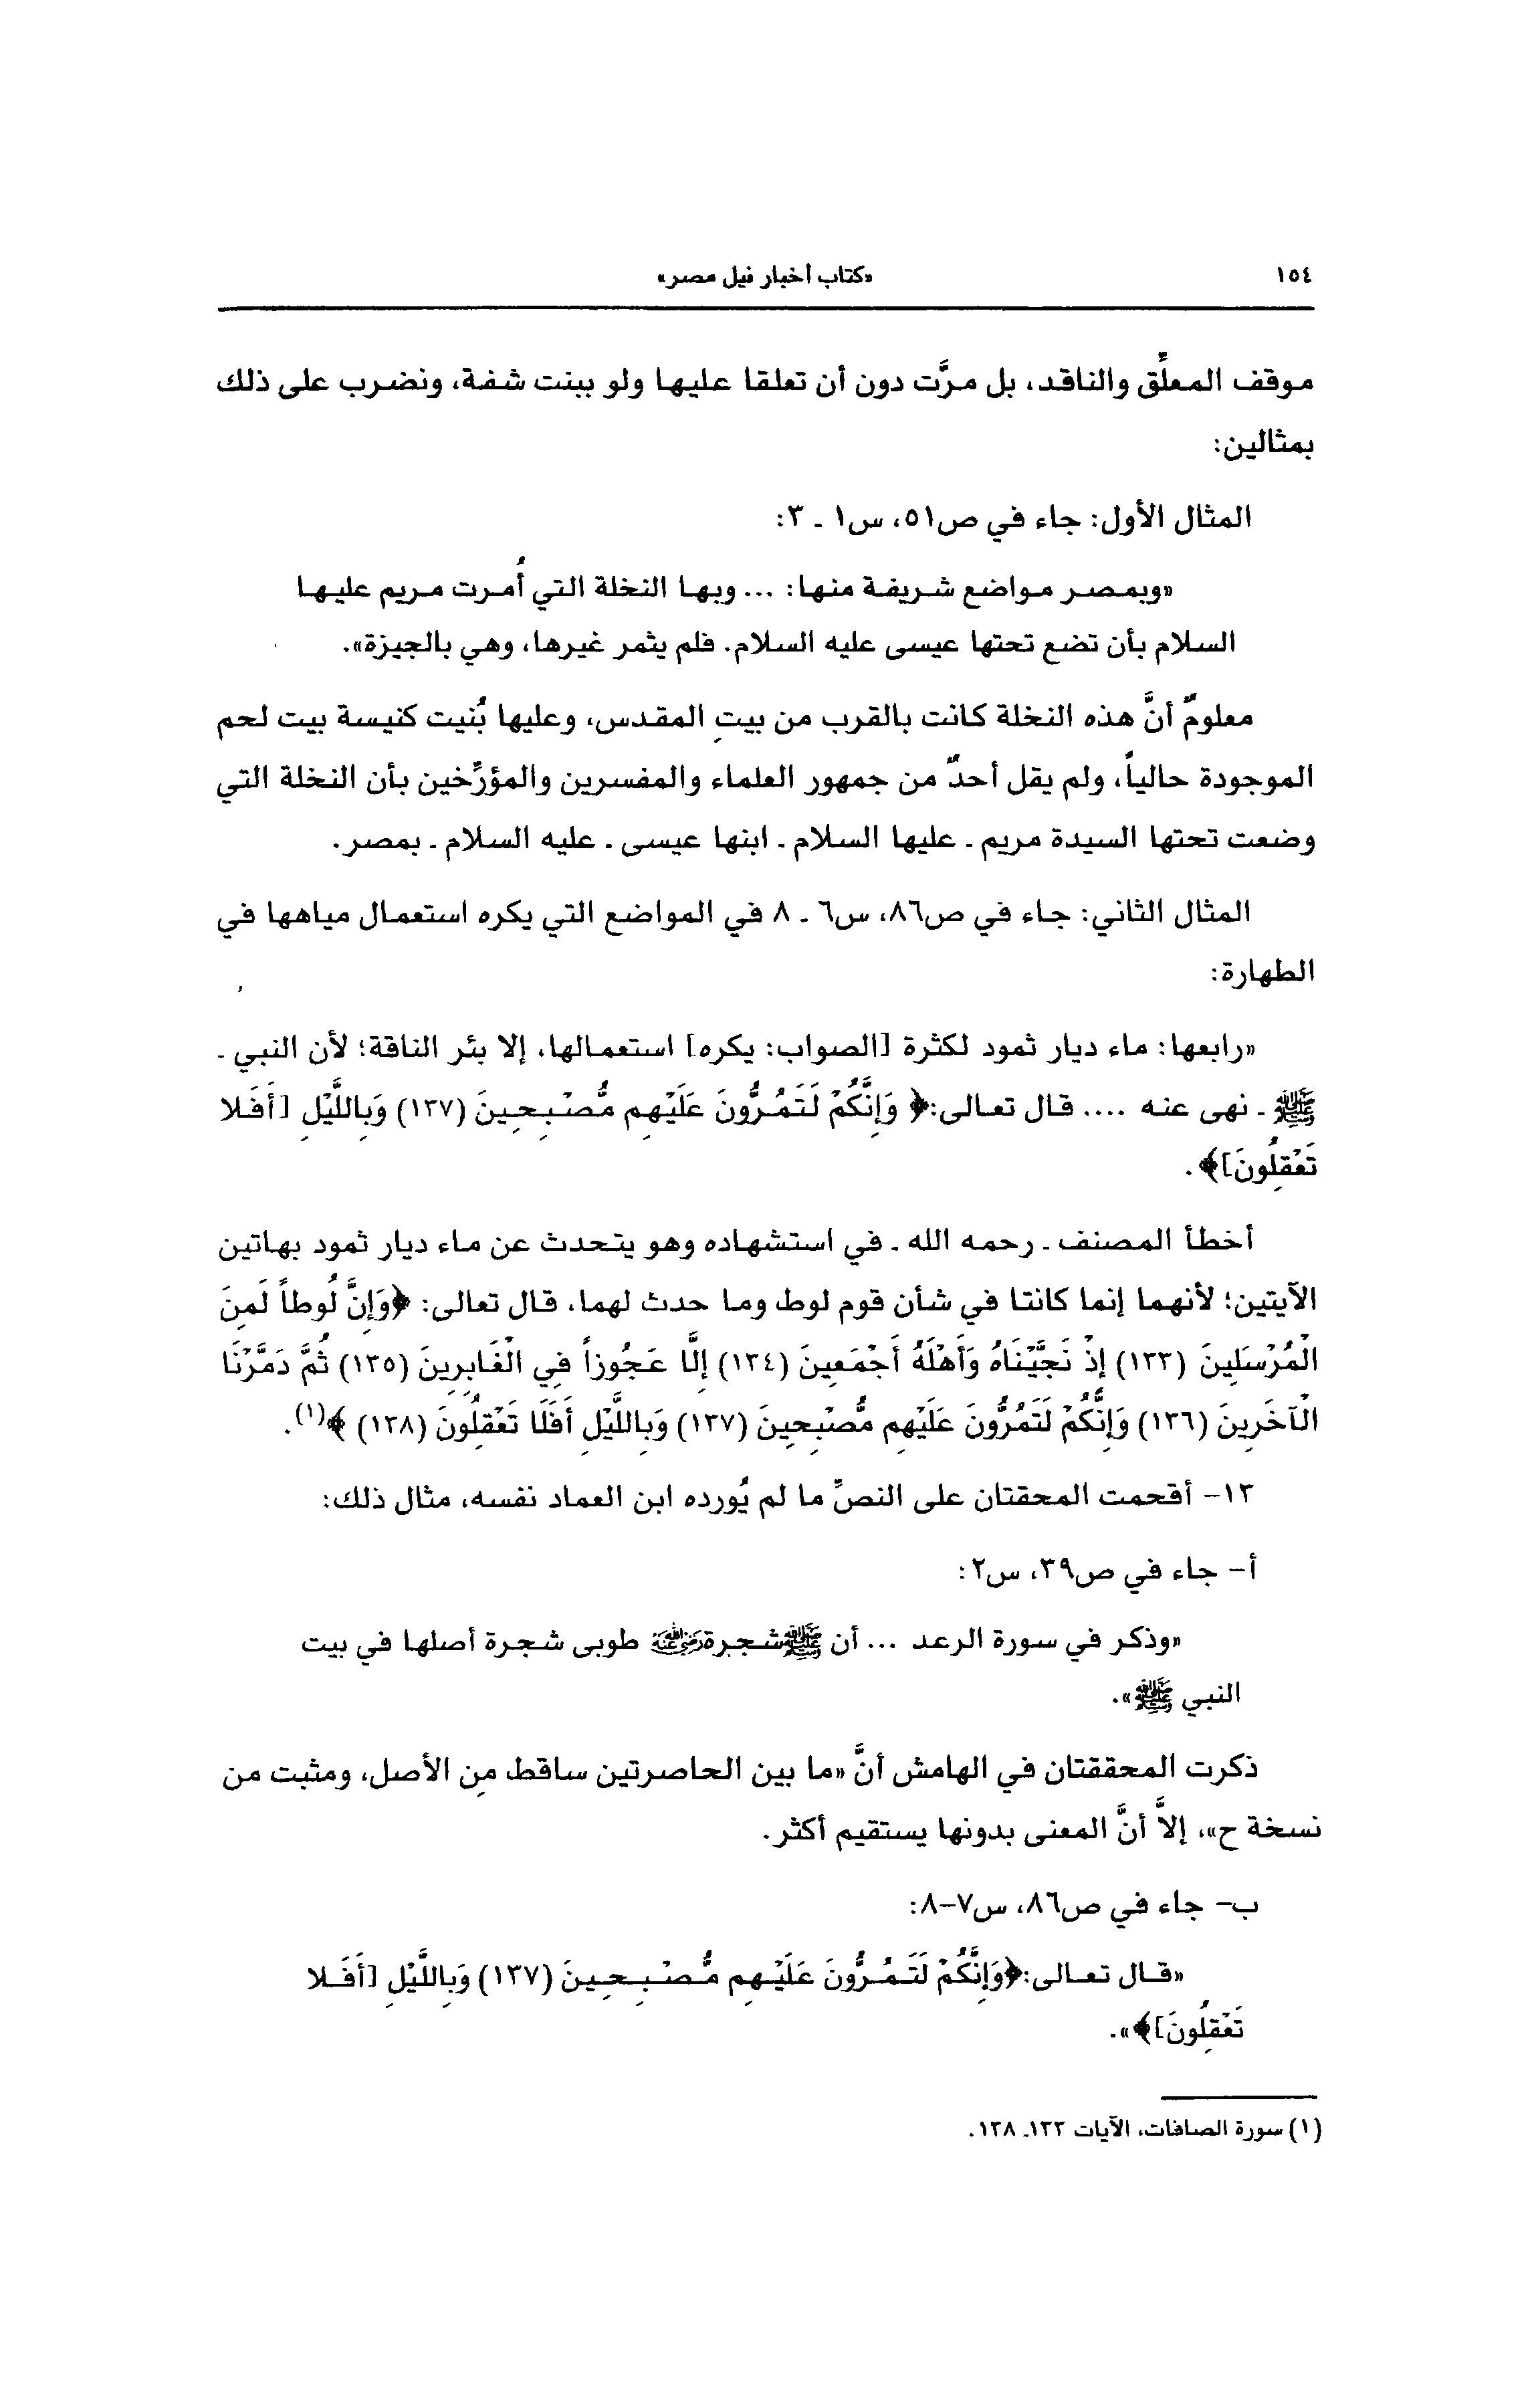 ١٥٤
«كتاب أخبار نيل مصر»
موقف المعلِّق والناقد، بل مرَّت دون أن تعلقا عليها ولو ببنت شفة، ونضرب على ذلك
بمثالين:
المثال الأول: جاء في ص٥١، س١ ـ ٣:
«وبمصر مواضع شريفة منها: ... وبها النخلة التي أُمرت مريم عليها
السلام بأن تضع تحتها عيسى عليه السلام. فلم يثمر غيرها، وهي بالجيزة».
معلومٌ أنَّ هذه النخلة كانت بالقرب من بيتِ المقدس، وعليها بُنيت كنيسة بيت لحم
الموجودة حالياً، ولم يقل أحدٌ من جمهور العلماء والمفسرين والمؤرِّخين بأن النخلة التي
وضعت تحتها السيدة مريم ـ عليها السلام ـ ابنها عيسى ـ عليه السلام ـ بمصر.
المثال الثاني: جاء في ص٨٦، س٦ ـ ٨ في المواضع التي يكره استعمال مياهها في
الطهارة:
«رابعها: ماء ديار ثمود لكثرة [الصواب: يكره] استعمالها، إلا بئر الناقة؛ لأن النبي ـ
ﷺ ـ نهى عنه .... قال تعالى:﴿ وَإِنَّكُمْ لَتَمُرُّونَ عَلَيْهِم مُّصْبِحِينَ (١٣٧) وَبِاللَّيْلِ [أَفَلا
تَعْقِلُونَ]﴾.
أخطأ المصنف ـ رحمه الله ـ في استشهاده وهو يتحدث عن ماء ديار ثمود بهاتين
الآيتين؛ لأنهما إنما كانتا في شأن قوم لوط وما حدث لهما، قال تعالى: ﴿وَإِنَّ لُوطاً لَمِنَ
الْمُرْسَلِينَ (١٣٣) إِذْ نَجَّيْنَاهُ وَأَهْلَهُ أَجْمَعِينَ (١٣٤) إِلَّا عَجُوزاً فِي الْغَابِرِينَ (١٣٥) ثُمَّ دَمَّرْنَا
الْآخَرِينَ (١٣٦) وَإِنَّكُمْ لَتَمُرُّونَ عَلَيْهِم مُّصْبِحِينَ (١٣٧) وَبِاللَّيْلِ أَفَلَا تَعْقِلُونَ (١٣٨) ﴾(١).
١٣- أقحمت المحقتان على النصِّ ما لم يُورده ابن العماد نفسه، مثال ذلك:
أ- جاء في ص٣٩، س٢:
«وذكر في سورة الرعد ... أن ﷺشجرةرضي الله عنه طوبى شجرة أصلها في بيت
النبي ﷺ».
ذكرت المحققتان في الهامش أنَّ «ما بين الحاصرتين ساقط مِن الأصل، ومثبت من
نسخة ح»، إلاَّ أنَّ المعنى بدونها يستقيم أكثر.
ب- جاء في ص٨٦، س٧-٨:
«قال تعالى:﴿وَإِنَّكُمْ لَتَمُرُّونَ عَلَيْهِم مُّصْبِحِينَ (١٣٧) وَبِاللَّيْلِ [أَفَلا
تَعْقِلُونَ]﴾».
(١) سورة الصافات، الآيات ١٣٣ـ ١٣٨.